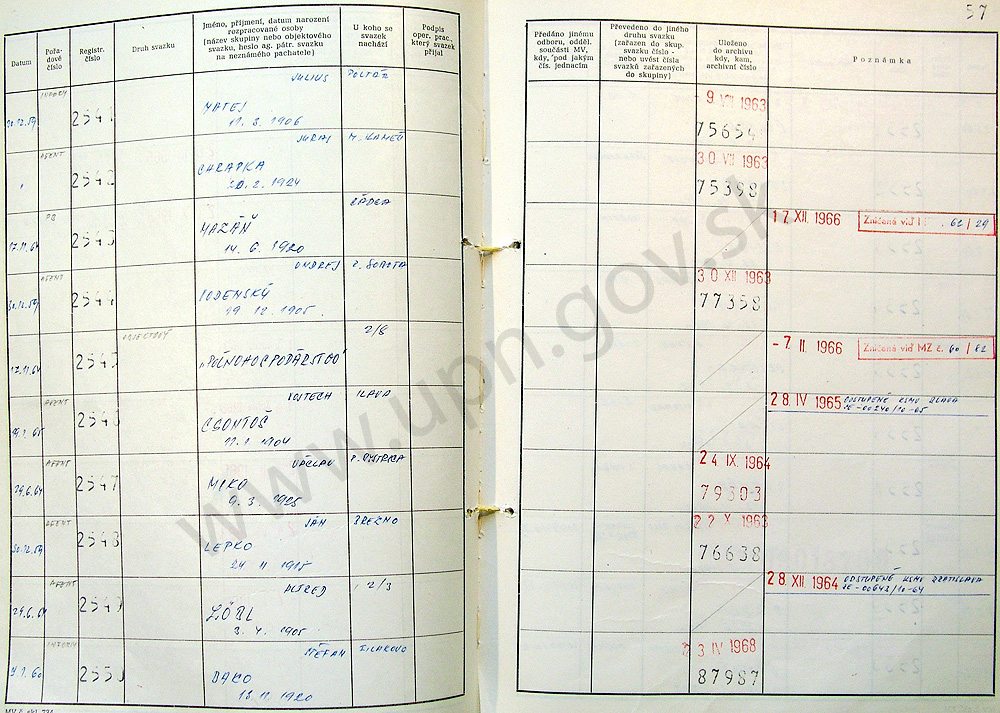 57
Datum
Pořadové číslo
Registr. číslo
Druh svazku
Jméno, příjmení, datum narození rozpracované osoby (název skupiny nebo objektového svazku, heslo ag. pátr. svazku na neznámého pachatele)
U koho se svazek nachází
Podpis oper. prac., který svazek přijal
Předáno jinému odboru, odděl. součásti MV, kdy, pod jakým čís. jednacím
Převedeno do jiného druhu svazku (zařazen do skup. svazku číslo - nebo uvést čísla svazků zařazených do skupiny)
Uloženo do archivu kdy, kam, archivní číslo
Poznámka
JULIUS POLTÁR
2541 MATEJ
11. 3. 1906
- 9 VII 1963
75654
AGENT JURAJ M. KAMEŇ
2542 CHRAPKA
20. 2. 1924
30 VII 1963
75398
PO
17.11.64 2543 MAZÁŇ
14. 6. 1920
17 XII. 1966 Zničené viď 62/29
AGENT ONDREJ R. SOBOTA
30.12.59 2544
19. 12. 1905
30 XII 1963
77358
OBJEKTOVÝ 2/8
17.11.64 2545 "POĽNOHOSPODÁRSTVO"
- 7. II. 1966 Zničené viď MZ č. 60/82
AGENT VOJTECH ILAVA
2546 CSONTOŠ
11. 1. 1904
28. IV 1965 ODSTUPENÉ KSMV
AGENT VÁCLAV B. BYSTRICA
29.6.64 2547 MIKO
9. 3. 1925
24 IX. 1964
79303
AGENT JÁN BREZNO
30.12.59 2548 LEPKO
24 11 1915
22 X 1963
76638
AGENT ALFRED 2/3
29.6.64 2549 LÖBL
3. 4. 1905
28. XII 1964 ODSTUPENÉ KSMV BRATISLAVA
-00643/10-64
INFORM ŠTEFAN FIĽAKOVO
2550 DAKO
13. 11. 1920
23 IV 1968
87987
www.upn.gov.sk